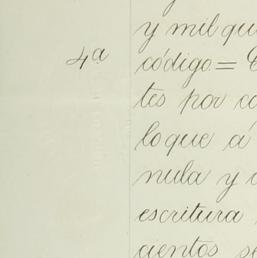 y mil qui
4ª
código =
tes por co
lo que á
nula y
escritura
cientos se